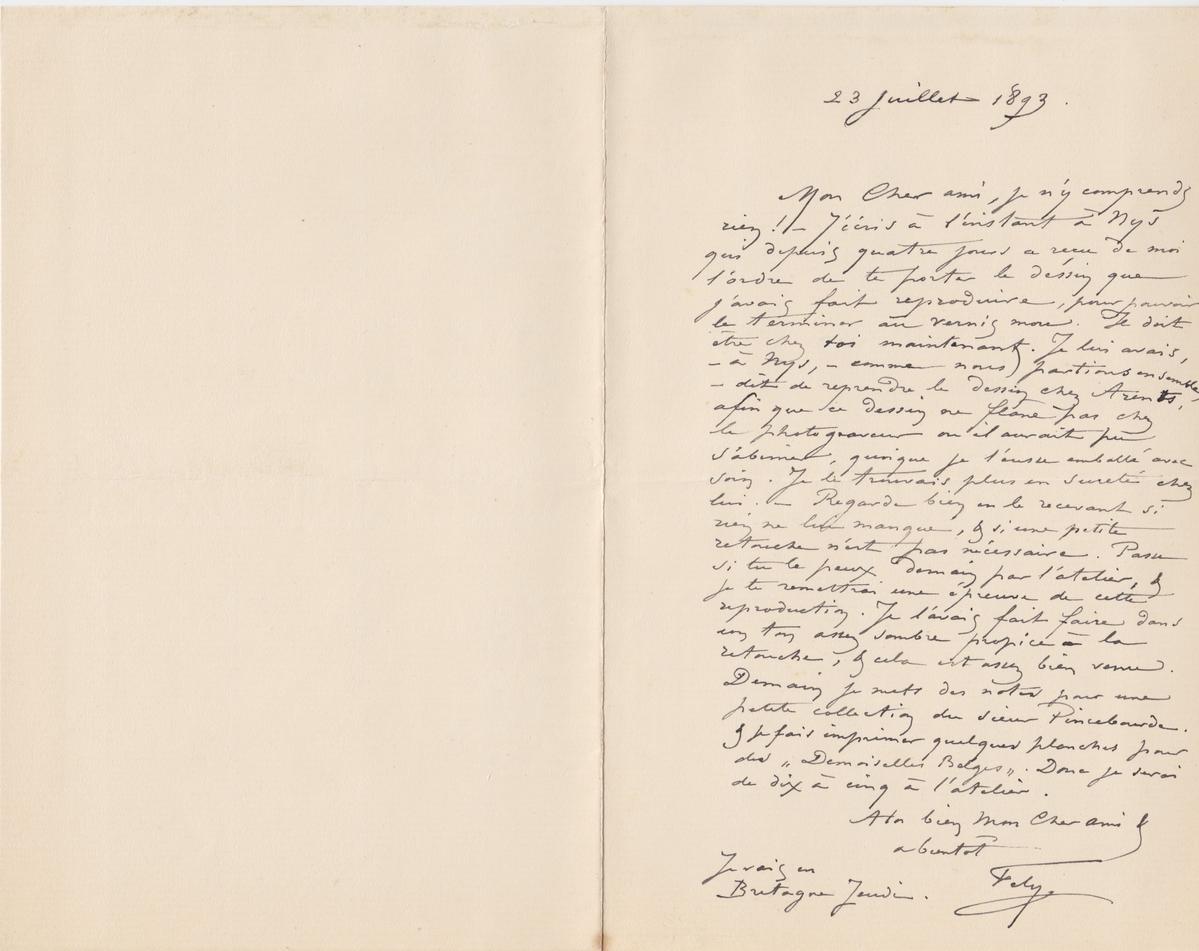 23 Juillet 1893.
Mon Cher ami, je n'y comprends
rien ! – J'écris à l'instant à Nys
qui depuis quatre jours a reçu de moi
l'ordre de te porter le dessin que
j'avais fait reproduire, pour pouvoir
le terminer au vernis mou. Il doit
être chez toi maintenant. Je lui avais,
– à Nys, – comme nous partions ensemble,
– dit de reprendre le dessin chez Arents,
afin que ce dessin ne flane pas chez
le photograveur ou il aurait pu
s'abimer, quoique je l'eusse emballé avec
soin. Je le trouvais plus en sureté chez
lui. – Regarde bien en le recevant si
rien ne lui manque, & si une petite
retouche n'est pas nécessaire. Passe
si tu le peux demain par l'atelier, &
je te remettrai une épreuve de cette
reproduction. Je l'avais fait faire dans
un ton assez sombre propice à la
retouche, & cela est assez bien venu.
Demain je mets des notes pour une
petite collection du sieur Pincebourde.
& je fais imprimer quelques planches pour
des „ Demoiselles Belges „. Donc je serai
de dix à cinq à l'atelier.
A toi bien Mon Cher ami &
a bientot
Fély
Je vais en
Bretagne Jeudi.